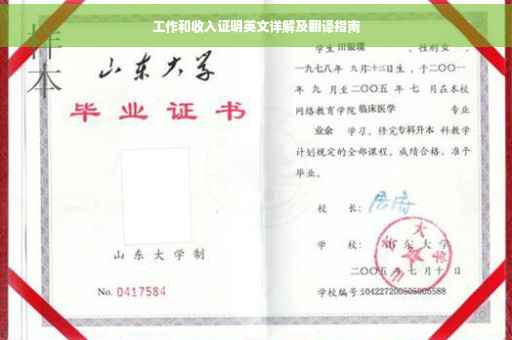 工作和收入证明英文详解及翻译指南
样本
山东大学
毕业证书
山东大学制
No. 0417584
学生 田银璞 ，性别 女 ，
一九七八年 九月十三日生，于二〇〇一
年 九 月至二〇〇五 年 七 月在本校
网络教育学院 临床医学 专业
业余 学习，修完专科升本科教学
计划规定的全部课程，成绩合格，准予
毕业。
校 长：
学 校：山东大学
二〇〇五 年 七 月 十 日
学校编号:104227200505005588